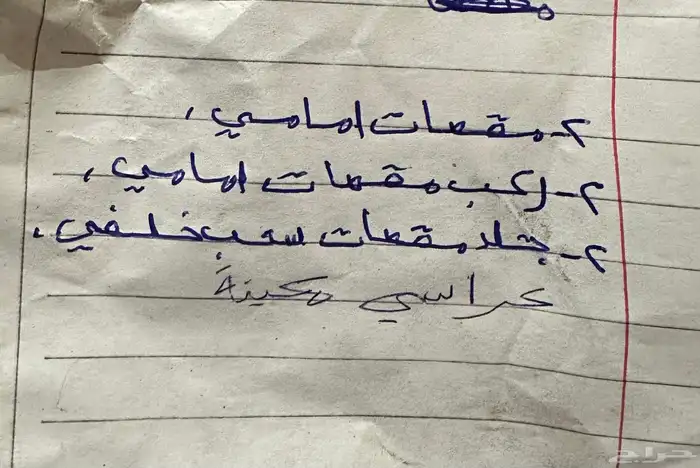 ٢- مقصات امامي،
٢- ركب مقصات امامي،
٢- جلد مقصات سحب خلفي،
كراسي مكينة
حراج